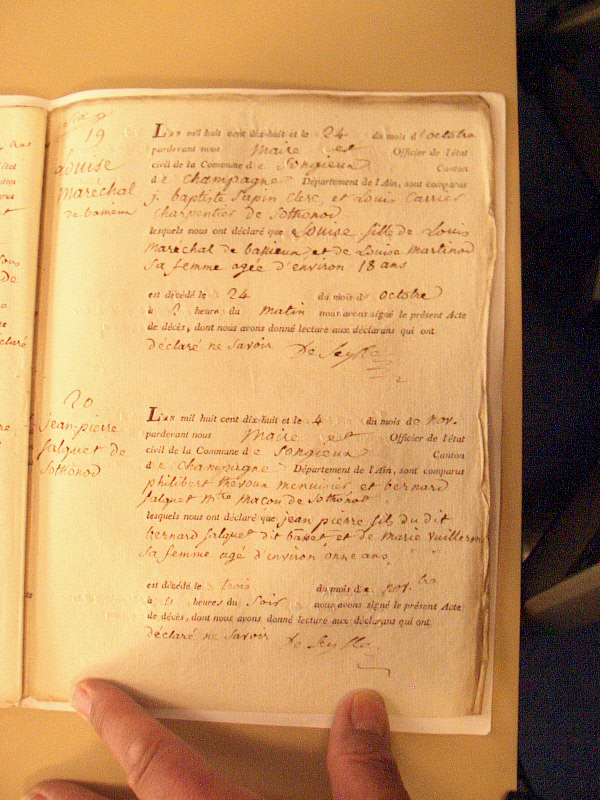 19
Louise
marechal
de bassieu
L'an mil huit cent dix-huit et le 24 du mois d'octobre
pardevant nous Maire et Officier de l'état
civil de la Commune de Songieux Canton
de champagne Département de l'Ain, sont comparus
j. baptiste Sapin clerc, et Louis Carrier
charpentier de Sothonod
lesquels nous ont déclaré que Louise fille de Louis
maréchal de bassieux et de Louise martinod
sa femme agée d'environ 18 ans
est décédé le 24 du mois d'octobre
à heures du matin nous avons signé le présent Acte
de décès, dont nous avons donné lecture aux déclarans qui ont
déclaré ne savoir
20
jean-pierre
falquet de
Sothonod
L'an mil huit cent dix-huit et le 4 du mois de nov.
pardevant nous Maire et Officier de l'état
civil de la Commune de Songieux Canton
de champagne Département de l'Ain, sont comparus
philibert thévoux menuisier et bernard
falquet mtre macon de Sothonod
lesquels nous ont déclaré que jean pierre fils du dit
bernard falquet dit basset et de marie vuillerm
sa femme agé d'environ onne ans,
est décédé le trois du mois de nov.bre
à heures du Soir nous avons signé le présent Acte
de décès, dont nous avons donné lecture aux déclarans qui ont
déclaré ne savoir